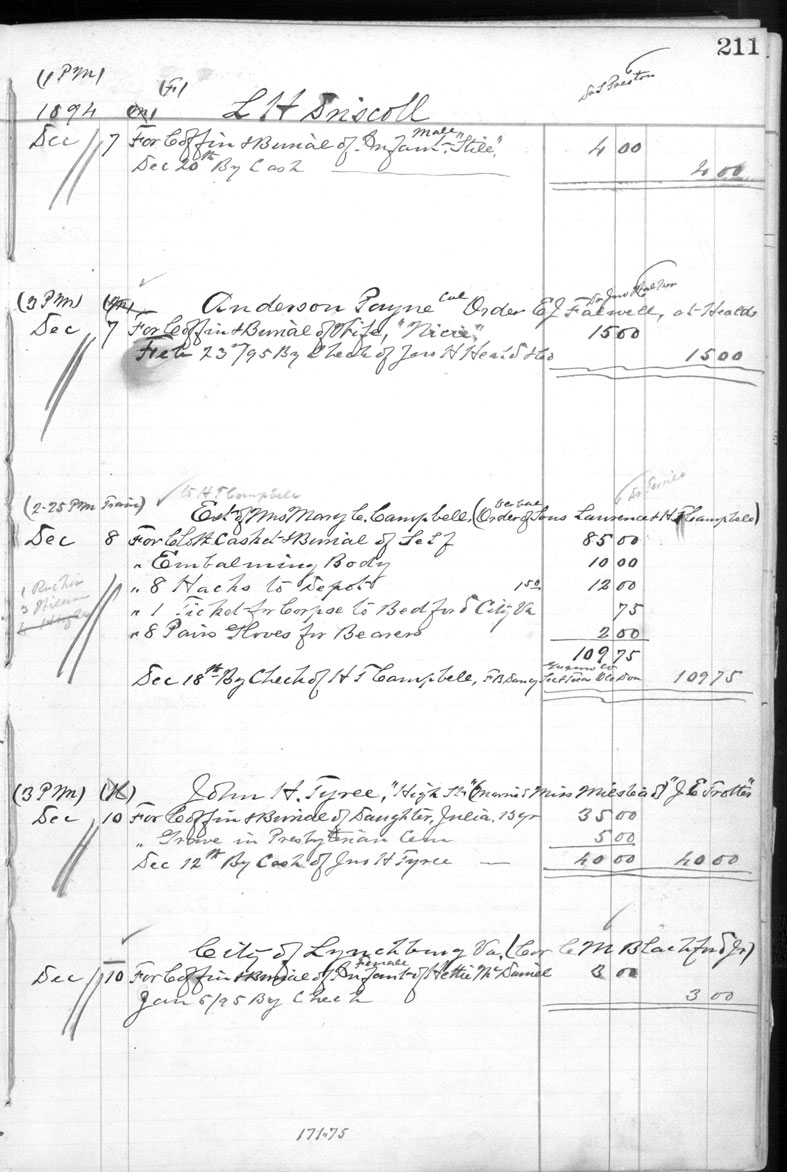 211
(1 PM) (F)
1894 (m) L H Driscoll Dr Preston
Dec 7 For Coffin & Burial of Infant Male "Still" 4 00
Dec 20th By Cash 4 00
(2 PM) Anderson Payne Col Order E J Falwell, at Healds
Dec 7 For Coffin & Burial of Wife, 15 00
Feb 23rd/95 By Check of Jno H Heald & Co 15 00
W H T Campbell
(2-25 PM Train) Est of Mrs Mary C. Campbell, (Verbal Order of Sons Laurence & H T Campbell)
Dec 8 For Cloth Casket & Burial of Self 85 00
" Embalming Body 10 00
" 8 Hacks to Depot 1 50 12 00
" 1 Ticket for Corpse to Bedford City Va 75
" 8 Pairs Gloves for Bearers 2 00
109 75
Dec 18th By Check of H T Campbell, 109 75
(3 PM) John H. Tyree, "High St" (married Miss Milstead) "J E Trotter"
Dec 10 For Coffin & Burial of Daughter, Julia, 13 yr 35 00
" Grave in Presbyterian Cem 5 00
Dec 12th By Cash of Jno H Tyree — 40 00 40 00
City of Lynchburg Va, (Cor C M Blackford Jr)
Dec 10 For Coffin & Burial of Female Infant of Hettie McDaniel 3 00
Jan 5/95 By Check 3 00
171.75